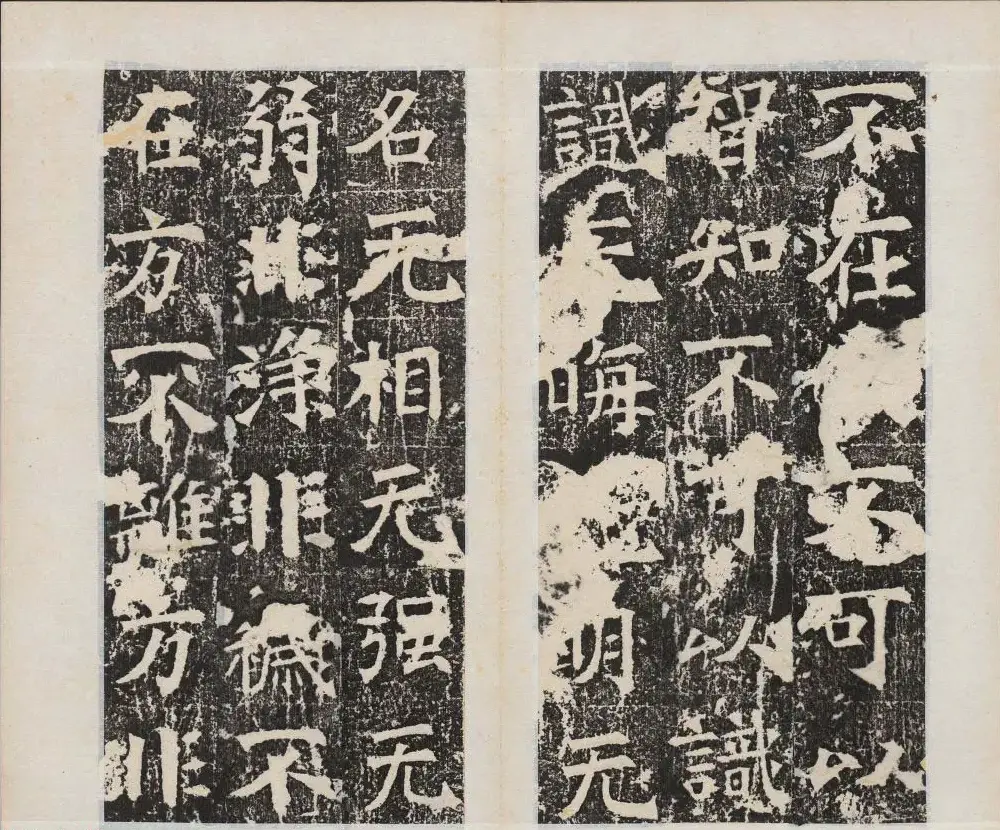 不在不可以
智知不可以識
識无晦明无
名无相无强无
弱非淨非穢不
在方不離方非